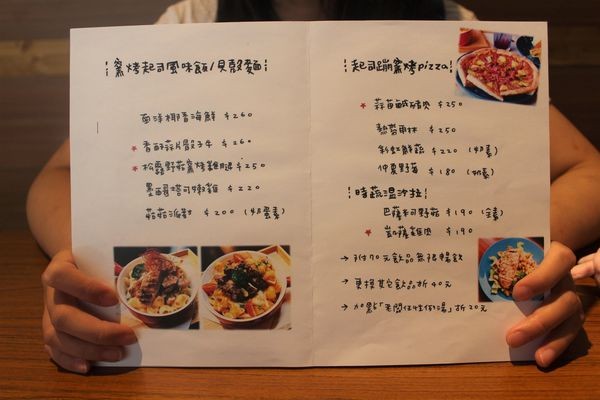 窯烤起司風味飯/貝殼麵
南洋椰香海鮮 $260
★ 香酥蒜片骰子牛 $260
★ 松露野菇窯烤雞腿 $250
墨西哥塔可嫩雞 $220
菇菇派對 $200 (奶蛋素)
起司蹦窯烤pizza
★ 蒜苗鹹豬肉 $250
熱帶雨林 $250
彩虹鮮蔬 $220 (奶素)
仲夏野莓 $180 (奶素)
時蔬溫沙拉
巴薩米可野菇 $190 (全素)
★ 凱薩雞肉 $190
→ 附70元飲品無限暢飲
→ 更換其它飲品折40元
→ 加點「 」折20元